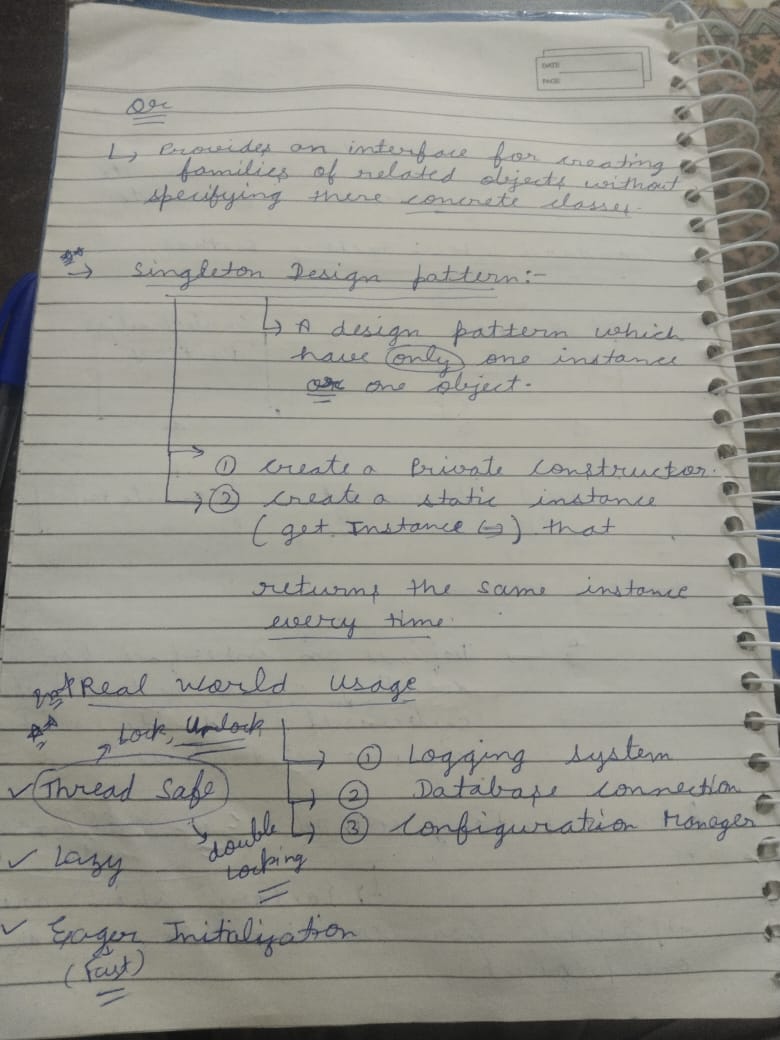 DATE
PAGE
Or
↳ Provides an interface for creating
families of related objects without
specifying there concrete classes.
→ Singleton Design pattern:-
↳ A design pattern which
have only one instance
or one object.
① Create a Private constructor.
② Create a static instance
(get Instance ()) that
returns the same instance
every time.
Imp Real World Usage
Lock, Unlock
① Logging system
✓ Thread Safe
② Database connection
③ Configuration Manager
double
Locking
✓ Lazy
✓ Eager Initialization
(Fast)